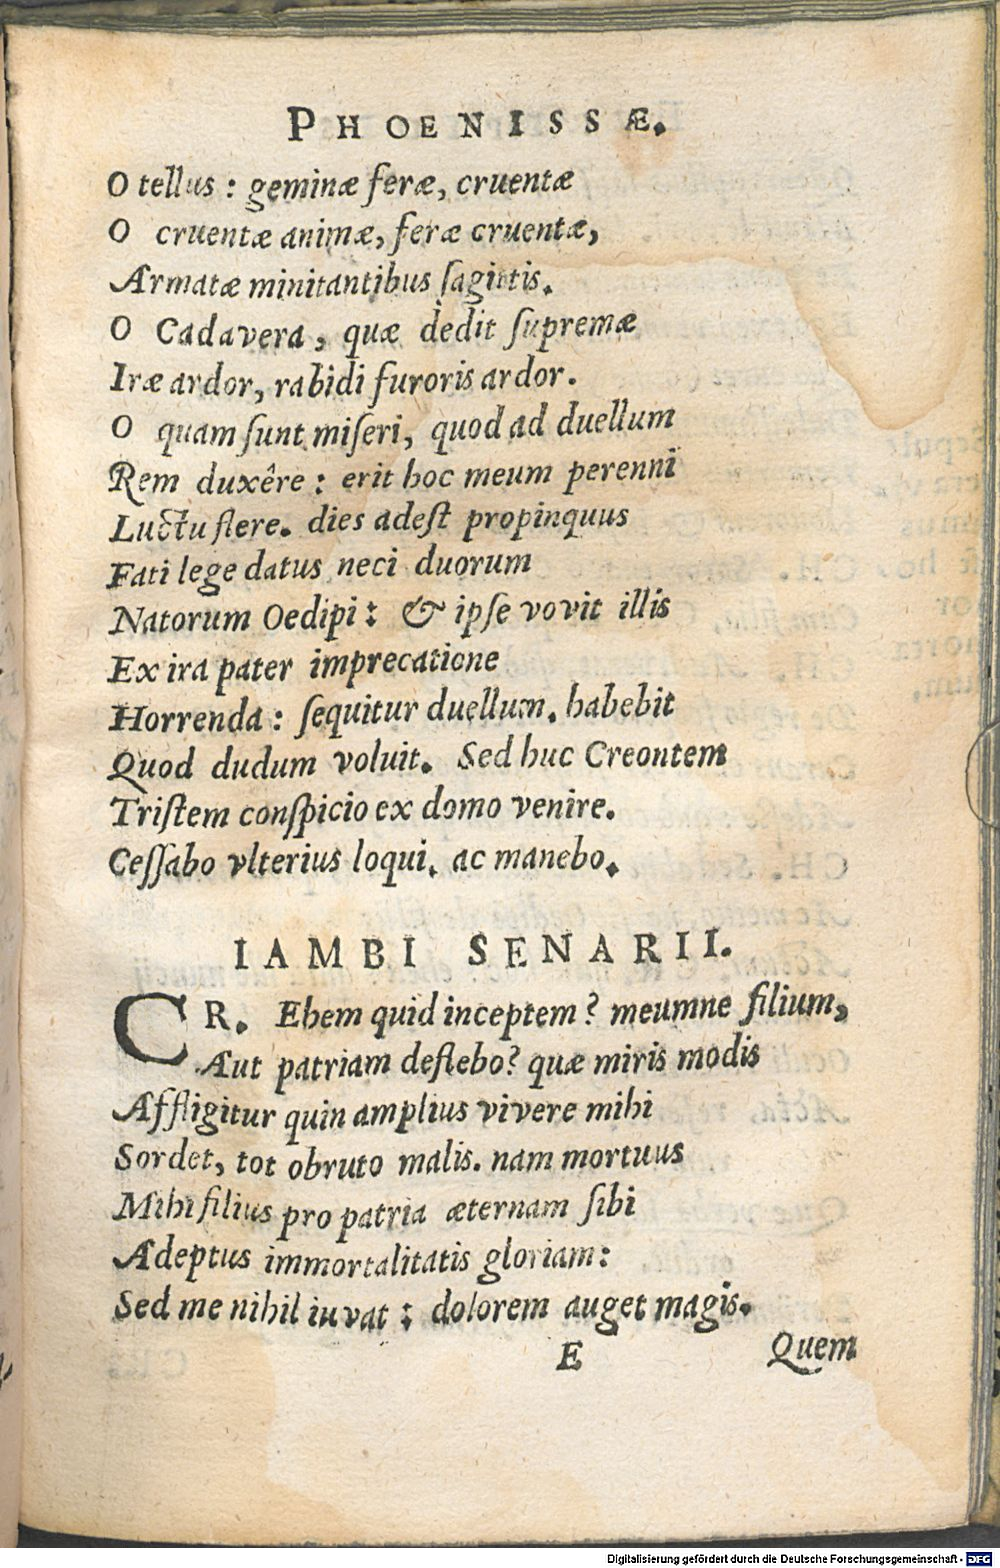 PHOENISSÆ.
O tellus : geminæ feræ, cruentæ
O cruentæ animæ, feræ cruentæ,
Armatæ minitantibus ſagittis.
O Cadavera, quæ dedit ſupremæ
Iræ ardor, rabidi furoris ardor.
O quam ſunt miſeri, quod ad duellum
Rem duxêre : erit hoc meum perenni
Luctu flere. dies adeſt propinquus
Fati lege datus neci duorum
Natorum Oedipi : & ipſe vovit illis
Ex ira pater imprecatione
Horrenda : ſequitur duellum. habebit
Quod dudum voluit. Sed huc Creontem
Triſtem conſpicio ex domo venire.
Ceſſabo vlterius loqui. ac manebo.
IAMBI SENARII.
CR. Ehem quid inceptem ? meumne filium,
Aut patriam deflebo? quæ miris modis
Affligitur quin amplius vivere mihi
Sordet, tot obruto malis. nam mortuus
Mihi filius pro patria æternam ſibi
Adeptus immortalitatis gloriam :
Sed me nihil iuvat : dolorem auget magis.
E Quem
Digitalisierung gefördert durch die Deutsche Forschungsgemeinschaft - DFG